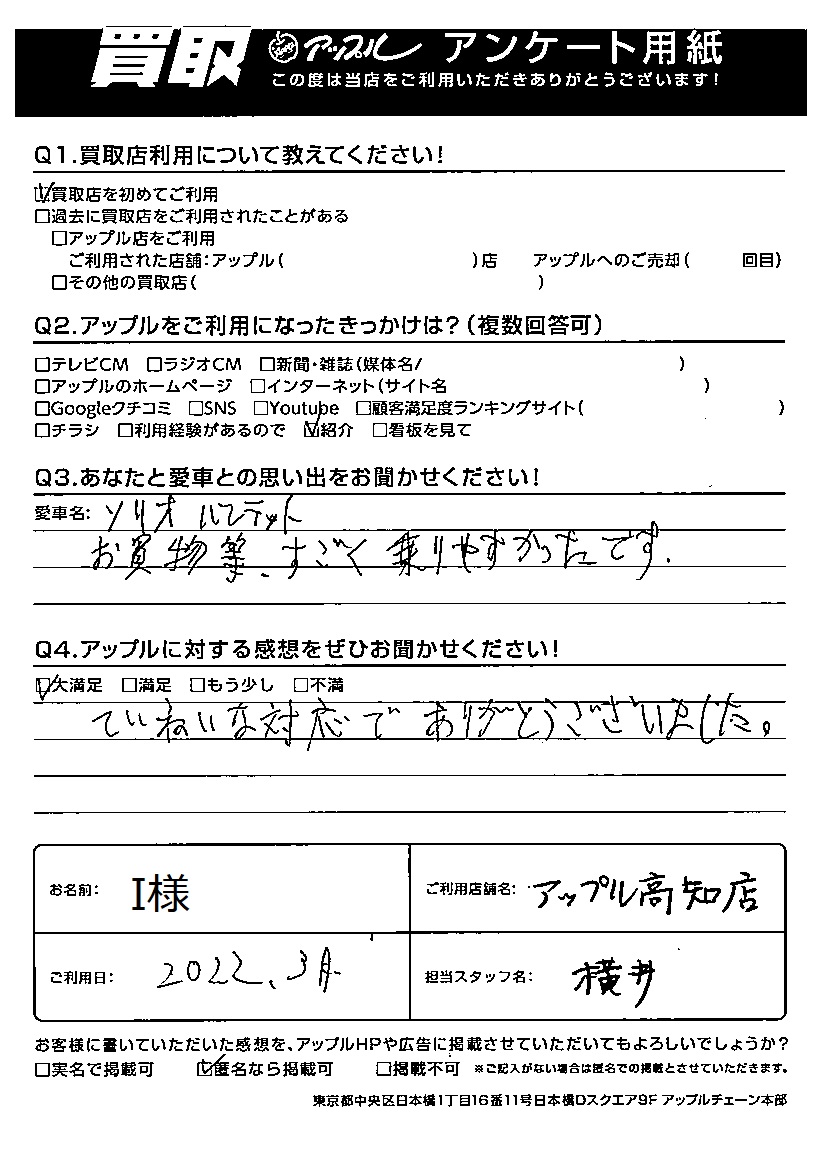 買取 アップル アンケート用紙
この度は当店をご利用いただきありがとうございます!
Q1.買取店利用について教えてください!
☑買取店を初めてご利用
□過去に買取店をご利用されたことがある
□アップル店をご利用
ご利用された店舗:アップル( )店 アップルへのご売却( 回目)
□その他の買取店( )
Q2.アップルをご利用になったきっかけは?(複数回答可)
□テレビCM □ラジオCM □新聞・雑誌(媒体名/ )
□アップルのホームページ □インターネット(サイト名 )
□Googleクチコミ □SNS □Youtube □顧客満足度ランキングサイト( )
□チラシ □利用経験があるので ☑紹介 □看板を見て
Q3.あなたと愛車との思い出をお聞かせください!
愛車名: ソリオ バンディット
お買物等、すごく乗りやすかったです.
Q4.アップルに対する感想をぜひお聞かせください!
☑大満足 □満足 □もう少し □不満
ていねいな対応で ありがとうございました。
お名前: I様 ご利用店舗名: アップル高知店
ご利用日: 2022、3月 担当スタッフ名: 横井
お客様に書いていただいた感想を、アップルHPや広告に掲載させていただいてもよろしいでしょうか?
□実名で掲載可 ☑匿名なら掲載可 □掲載不可 ※ご記入がない場合は匿名での掲載とさせていただきます。
東京都中央区日本橋1丁目16番11号日本橋Dスクエア9F アップルチェーン本部